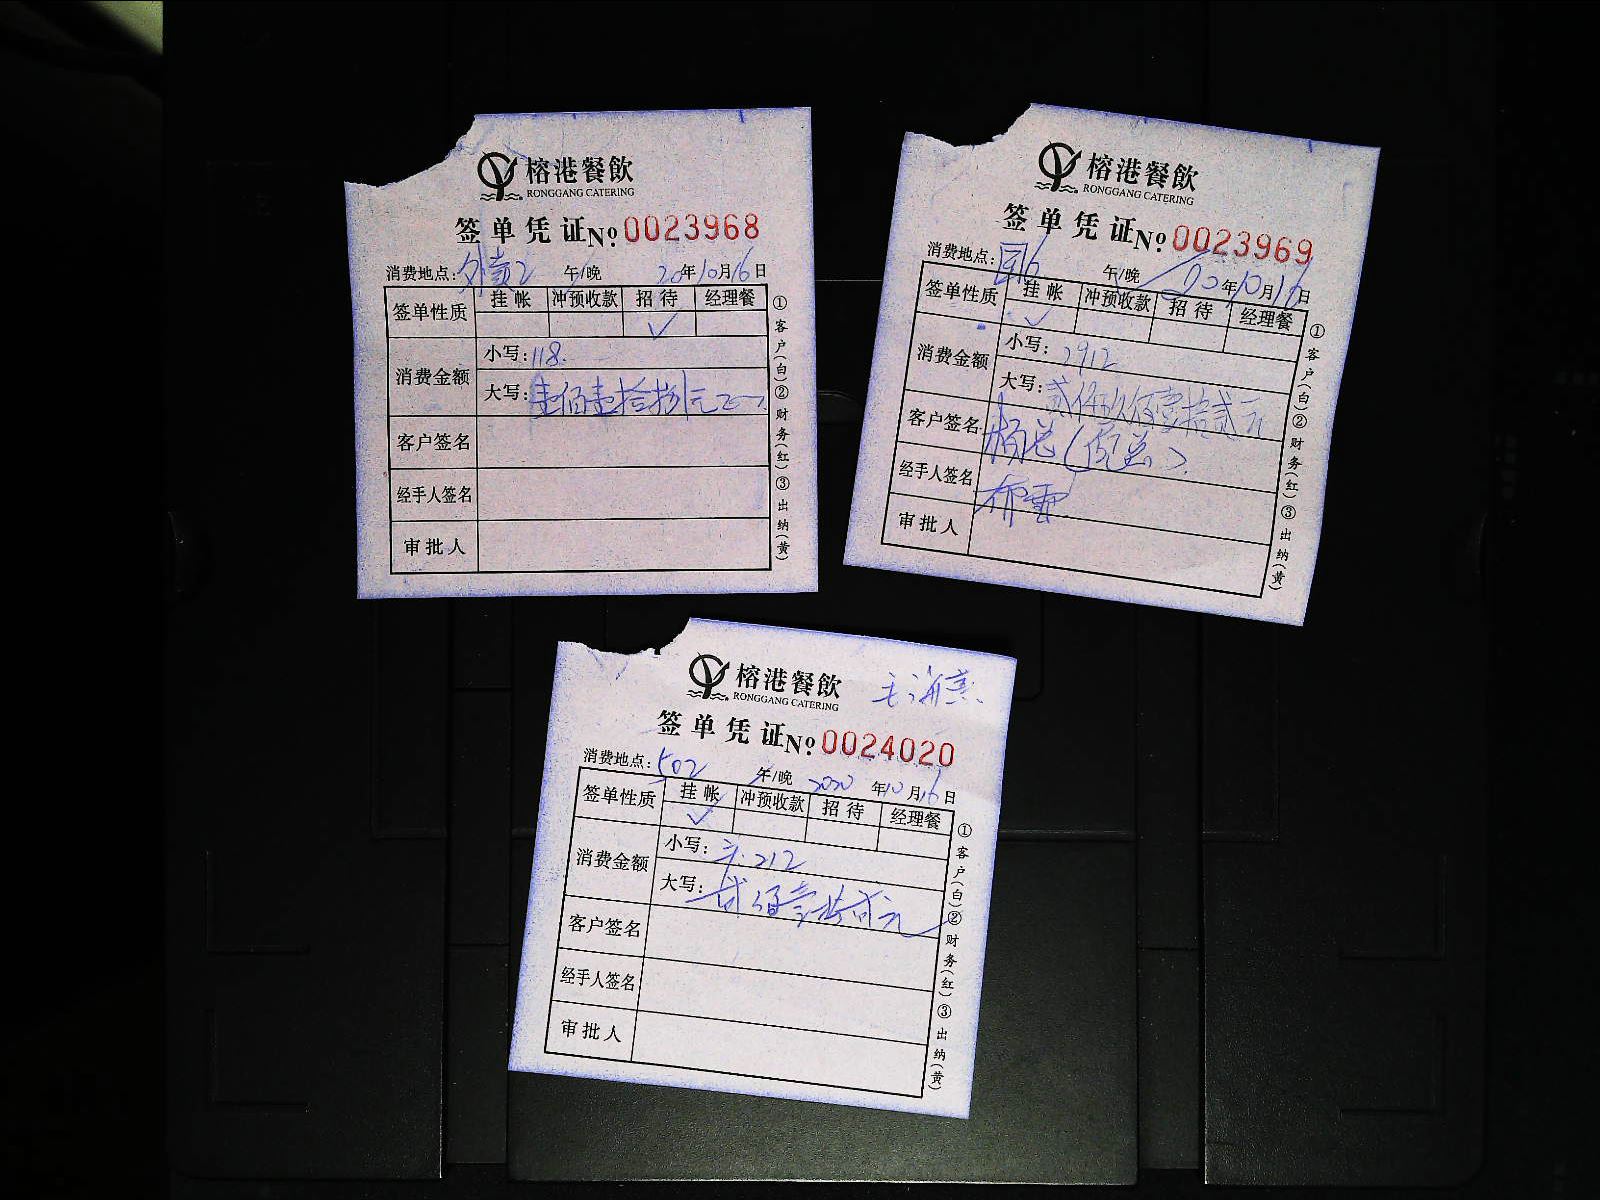 榕港餐飲
RONGGANG CATERING
签单凭证 № 0023968
消费地点：外卖2 午/晚 20年10月16日
签单性质 挂帐 冲预收款 招待 经理餐
✓
消费金额
小写：118.
大写：壹佰壹拾捌元
客户签名
经手人签名
审批人
①客户（白）②财务（红）③出纳（黄）
榕港餐飲
RONGGANG CATERING
签单凭证 № 0023969
消费地点：团6 午/晚 20年10月16日
签单性质 挂帐 冲预收款 招待 经理餐
✓
消费金额
小写：2912
大写：贰仟玖佰壹拾贰元
客户签名 杨总
经手人签名
审批人
①客户（白）②财务（红）③出纳（黄）
榕港餐飲
RONGGANG CATERING
签单凭证 № 0024020
消费地点：502 午/晚 2020年10月16日
签单性质 挂帐 冲预收款 招待 经理餐
✓
消费金额
小写：212
大写：贰佰壹拾贰元
客户签名
经手人签名
审批人
①客户（白）②财务（红）③出纳（黄）